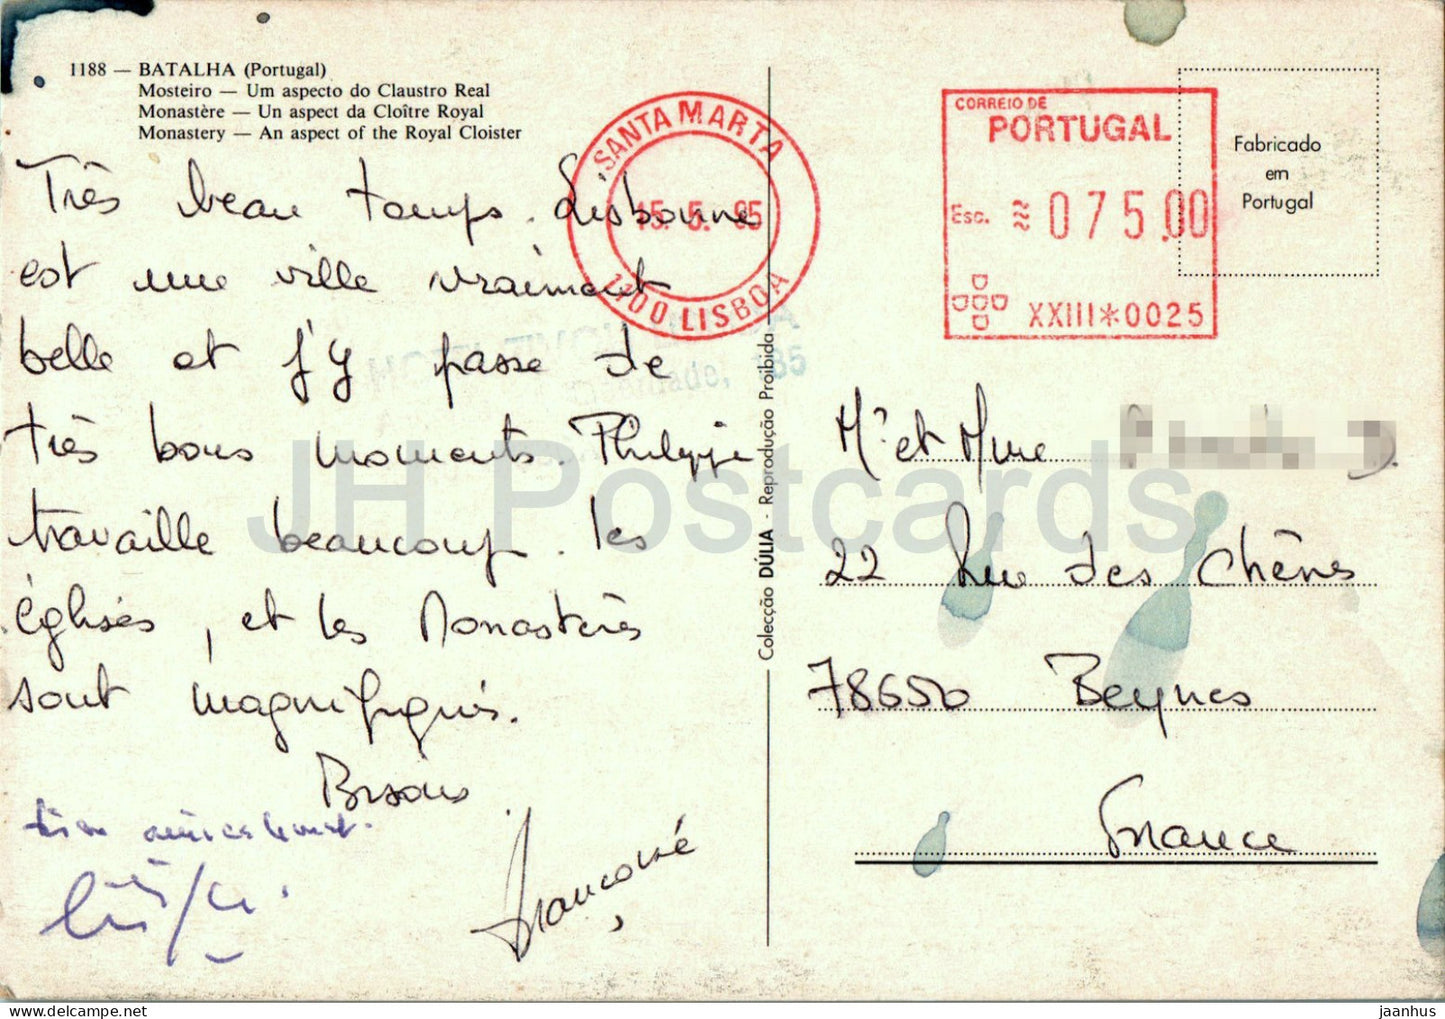 1188 — BATALHA (Portugal)
Mosteiro — Um aspecto do Claustro Real
Monastère — Un aspect da Cloître Royal
Monastery — An aspect of the Royal Cloister
Très beau temps. Lisbonne
est une ville vraiment
belle et j'y passe de
très bons moments. Philippe
travaille beaucoup. les
églises, et les Monastères
sont magnifiques.
Bisous
bien amicalement.
Françoise
SANTA MARTA
15. 5. 95
1100 LISBOA
CORREIO DE
PORTUGAL
Esc. 075.00
XXIII*0025
Fabricado
em
Portugal
Colecção DÚLIA - Reprodução Proibida
Mr et Mme D.
22 Rue des Chênes
78650 Beynes
France
JH Postcards
bidStation.com
jaanhus